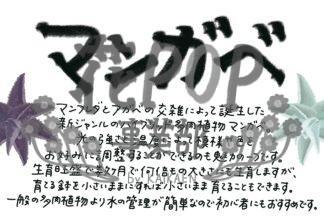 マンガベ
マンフレダとアガベの交雑によって誕生した
新ジャンルのハイブリッド多肉植物 マンガベ。
光の強さや温度によって模様や色を
お好みに調整することができるのも魅力の一つです。
生育旺盛で数ヶ月で何倍もの大きさにも生育しますが、
育てる鉢を小さいままにすれば小さいまま育てることもできます。
一般の多肉植物より水の管理が簡単なので初心者にもおすすめです。
POP